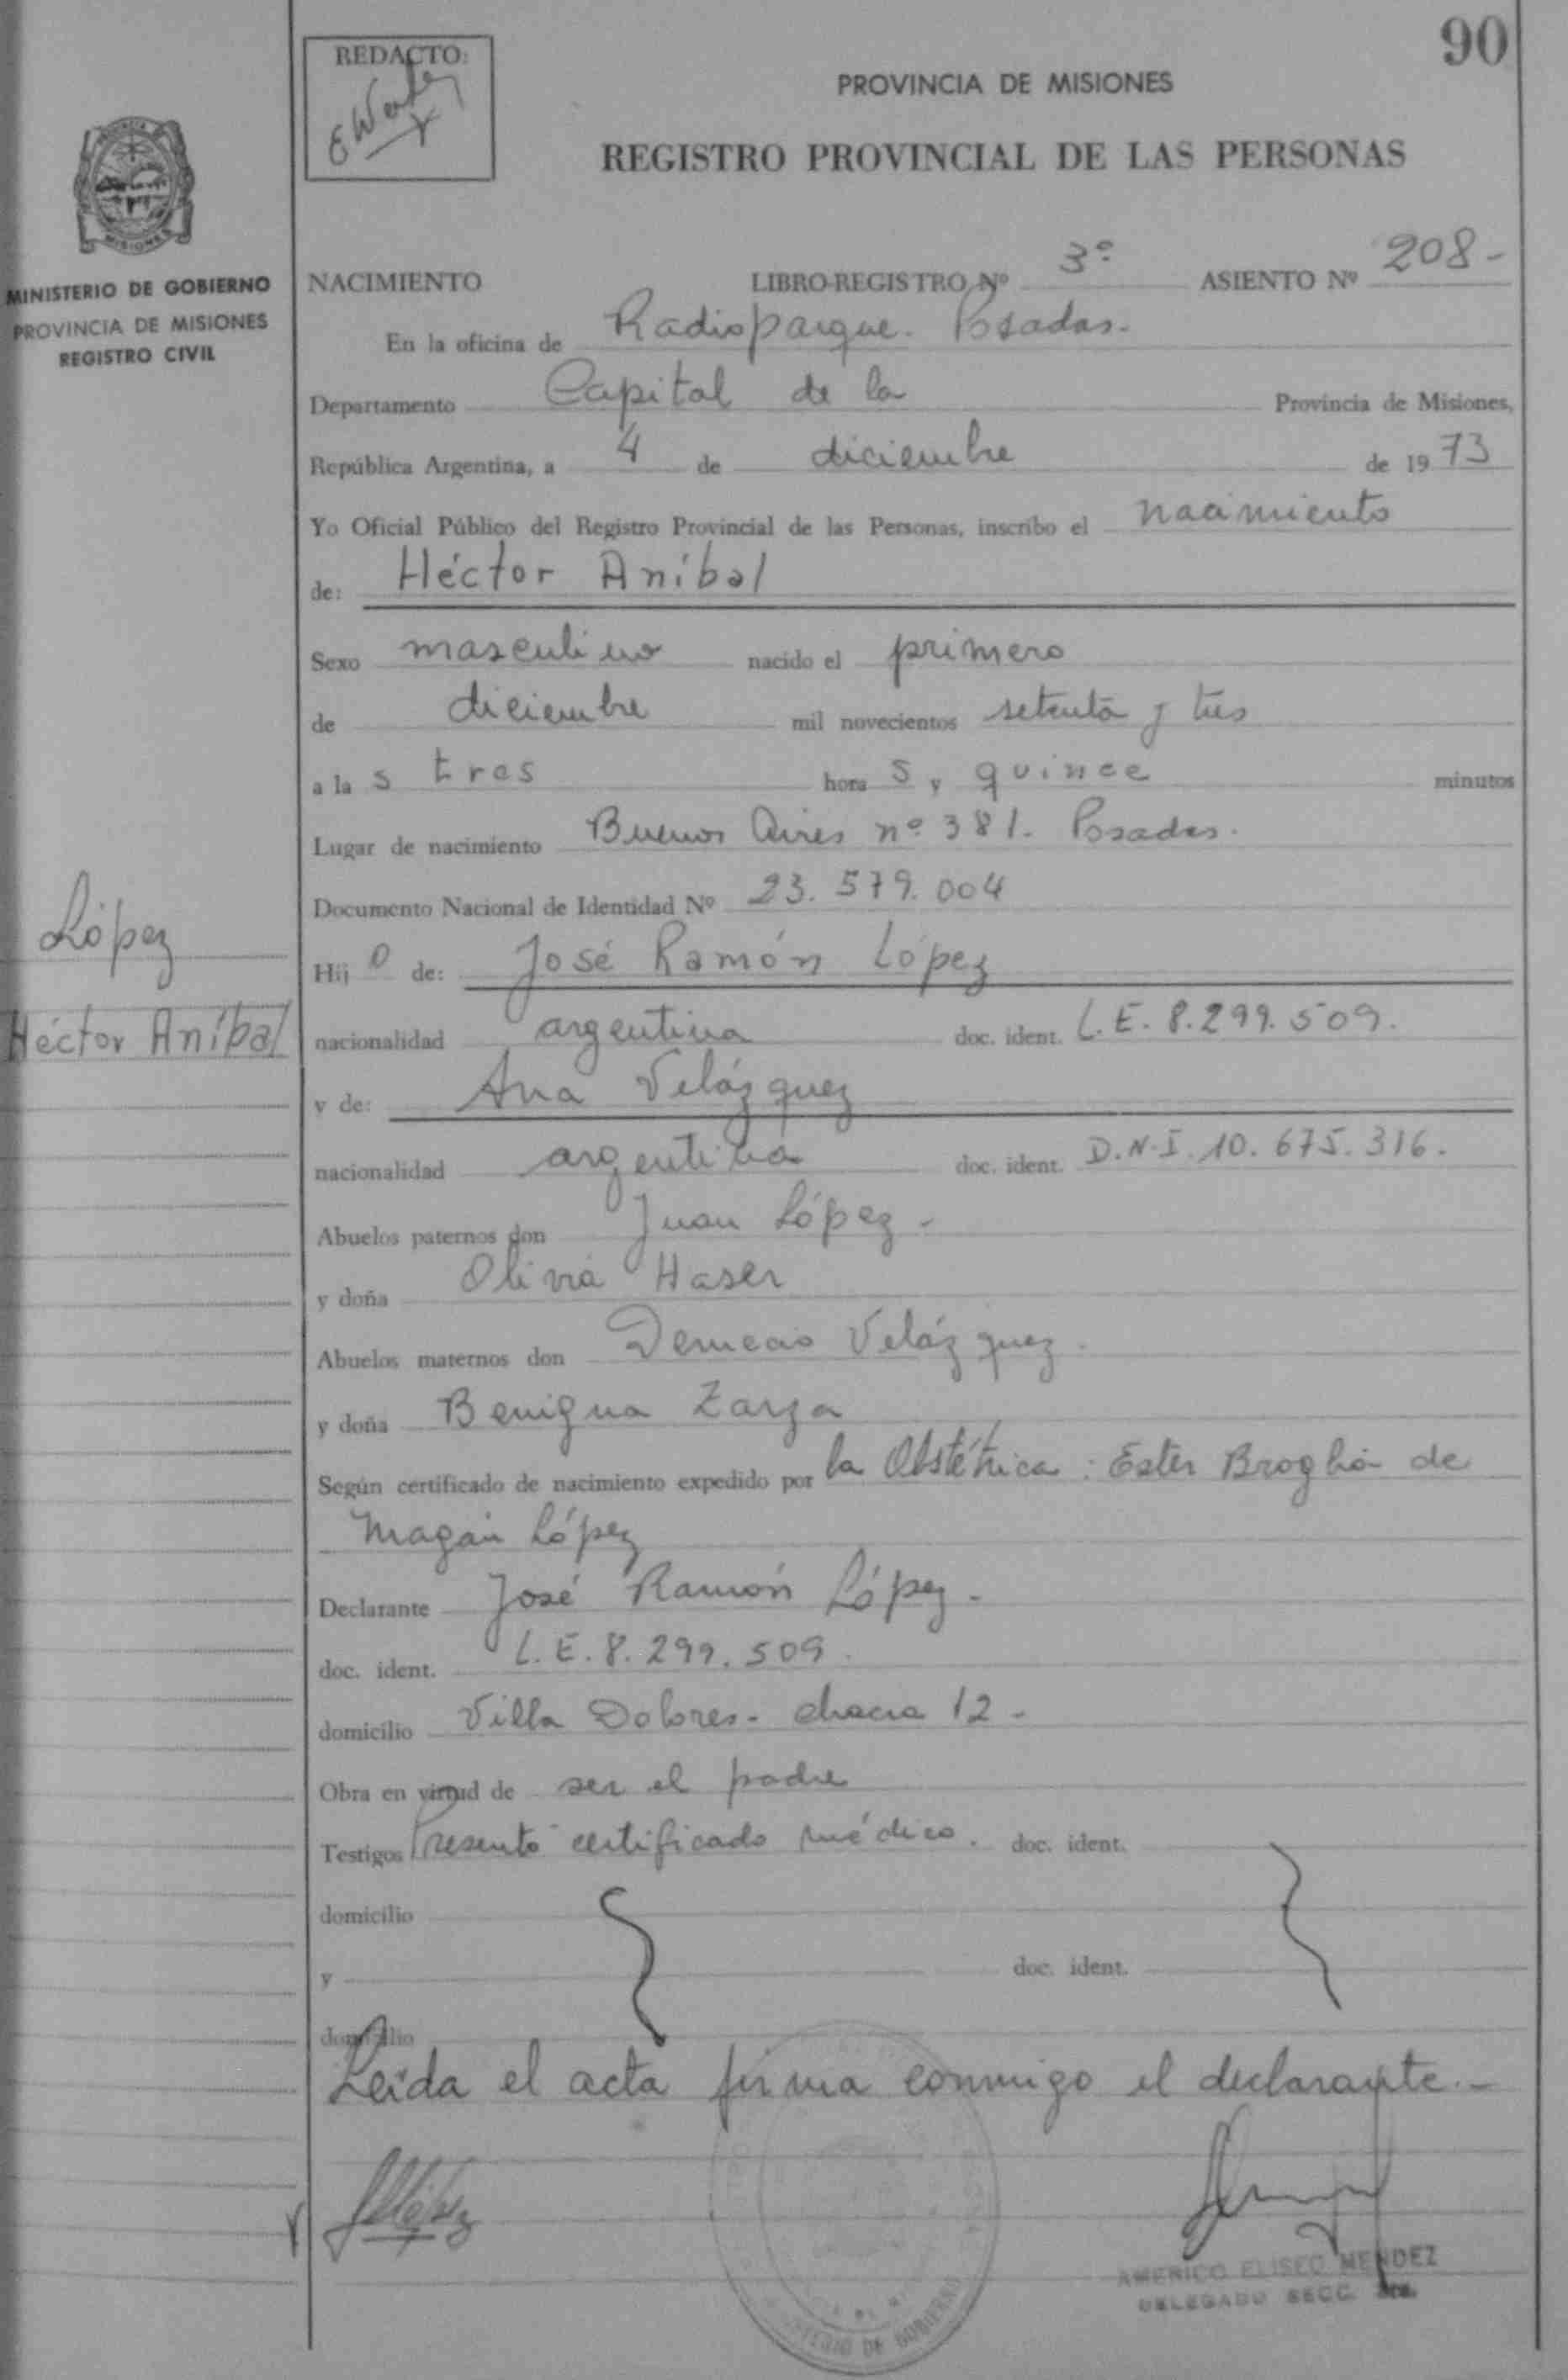 90
REDACTO:
PROVINCIA DE MISIONES
REGISTRO PROVINCIAL DE LAS PERSONAS
PROVINCIA
MISIONES
MINISTERIO DE GOBIERNO
PROVINCIA DE MISIONES
REGISTRO CIVIL
NACIMIENTO LIBRO-REGISTRO Nº 3º ASIENTO Nº 208-
En la oficina de Radioparque. Posadas.
Departamento Capital de la Provincia de Misiones,
República Argentina, a 4 de diciembre de 1973
Yo Oficial Público del Registro Provincial de las Personas, inscribo el nacimiento
de: Héctor Aníbal
Sexo masculino nacido el primero
de diciembre mil novecientos setenta y tres
a la s tres hora s y quince minutos
Lugar de nacimiento Buenos Aires nº 381. Posadas.
Documento Nacional de Identidad Nº 23.579.004
López
Hij o de: José Ramón López
Héctor Aníbal
nacionalidad argentina doc. ident. L.E. 8.299.509.
y de: Ana Velázquez
nacionalidad argentina doc. ident. D.N.I. 10.675.316.
Abuelos paternos don Juan López-
y doña Olivia Haser
Abuelos maternos don Velázquez.
y doña Benigna Zarza
Según certificado de nacimiento expedido por la Obstétrica: Ester Broglia de
Magan López
Declarante José Ramón López-
doc. ident. L.E. 8.299.509.
domicilio Villa Dolores- chacra 12-
Obra en virtud de ser el padre
Testigos Presentó certificado médico. doc. ident.
domicilio
y doc. ident.
domicilio
Leída el acta firma conmigo el declarante.-
López
AMERICO ELISEO MENDEZ
DELEGADO SECC. 3ra.
MINISTERIO DE GOBIERNO